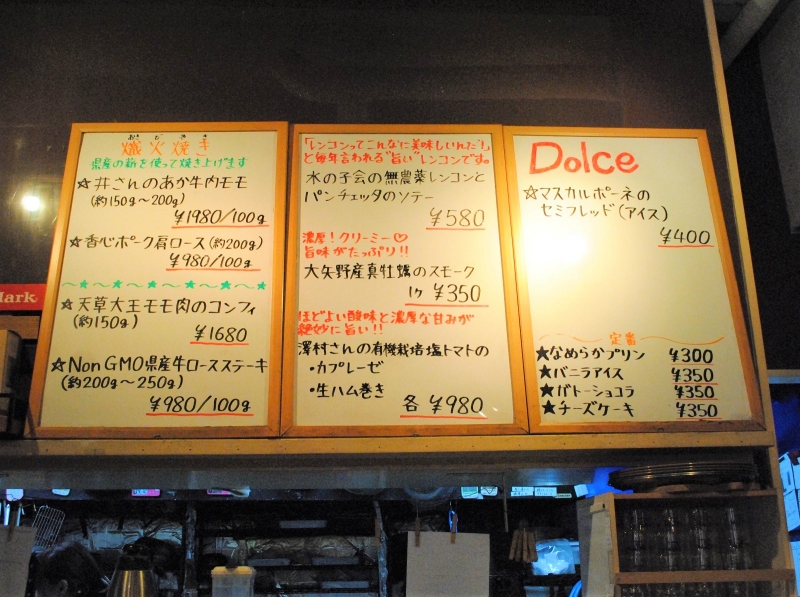 おきびやき
熾火焼き
県産の薪を使って焼き上げます
☆井さんのあか牛内モモ
(約150g～200g)
¥1980/100g
☆香心ポーク肩ロース(約200g)
¥980/100g
～★～★～★～★～★～★
☆天草大王モモ肉のコンフィ
(約150g)
¥1680
☆Non GMO県産牛ロースステーキ
(約200g～250g)
¥980/100g
「レンコンってこんなに美味しいんだ!」
と毎年言われる"旨い"レンコンです。
水の子会の無農薬レンコンと
パンチェッタのソテー
¥580
濃厚!クリーミー♡
旨味がたっぷり!!
大矢野産真牡蠣のスモーク
1ケ ¥350
ほどよい酸味と濃厚な甘みが
絶妙に旨い!!
澤村さんの有機栽培塩トマトの
・カプレーゼ
・生ハム巻き
各 ¥980
Dolce
☆マスカルポーネの
セミフレッド(アイス)
¥400
定番
★なめらかプリン ¥300
★バニラアイス ¥350
★ガトーショコラ ¥350
★チーズケーキ ¥350
Mark